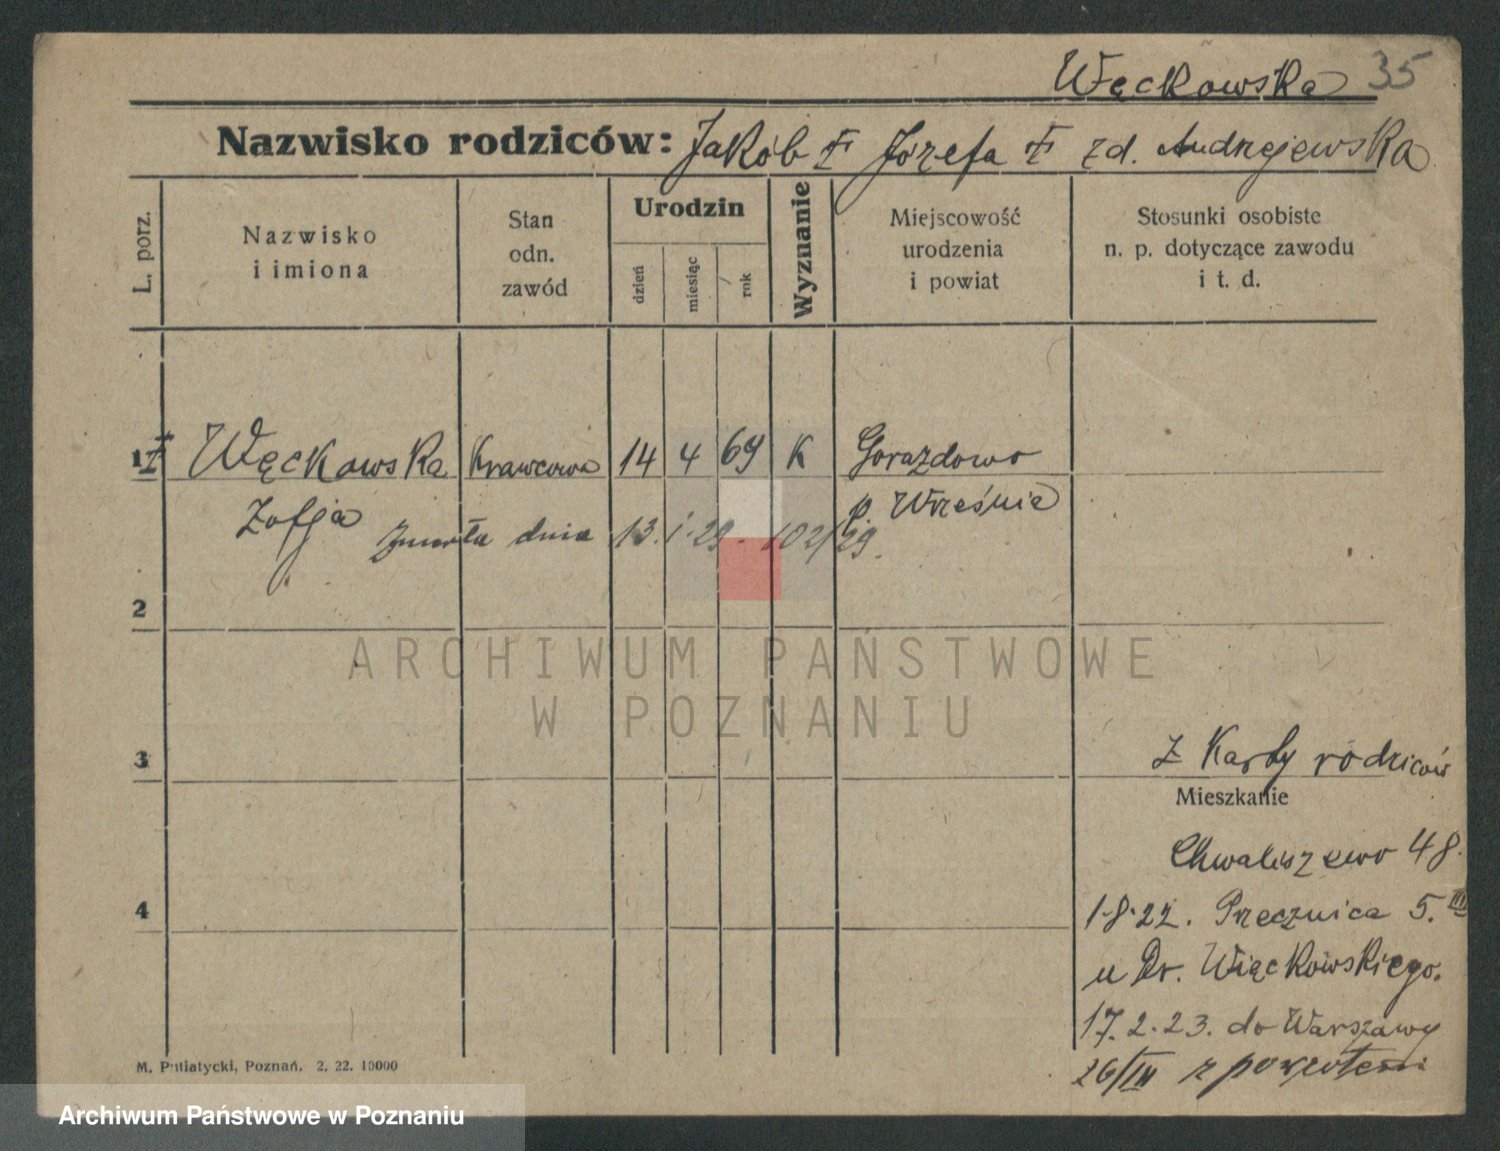 Węckowska 35
Nazwisko rodziców: Jakób ‡ Józefa ‡ zd. Andrzejewska
L. porz.
Nazwisko
i imiona
Stan
odn.
zawód
Urodzin
dzień
miesiąc
rok
Wyznanie
Miejscowość
urodzenia
i powiat
Stosunki osobiste
n. p. dotyczące zawodu
i t. d.
1 ‡ Węckowska Krawcowa 14 4 69 K Gorazdowo
Zofja p. Wrześnie
zmarła dnia 13. 1. 29. 102/29.
2
ARCHIWUM PAŃSTWOWE
W POZNANIU
3
z Karty rodziców
Mieszkanie
Chwaliszewo 48.
4
1.8.22. Przecznica 5. III
u Dr. Więckowskiego.
17.2.23. do Warszawy
26/III z powrotem
M. Putiatycki, Poznań. 2. 22. 10000
Archiwum Państwowe w Poznaniu